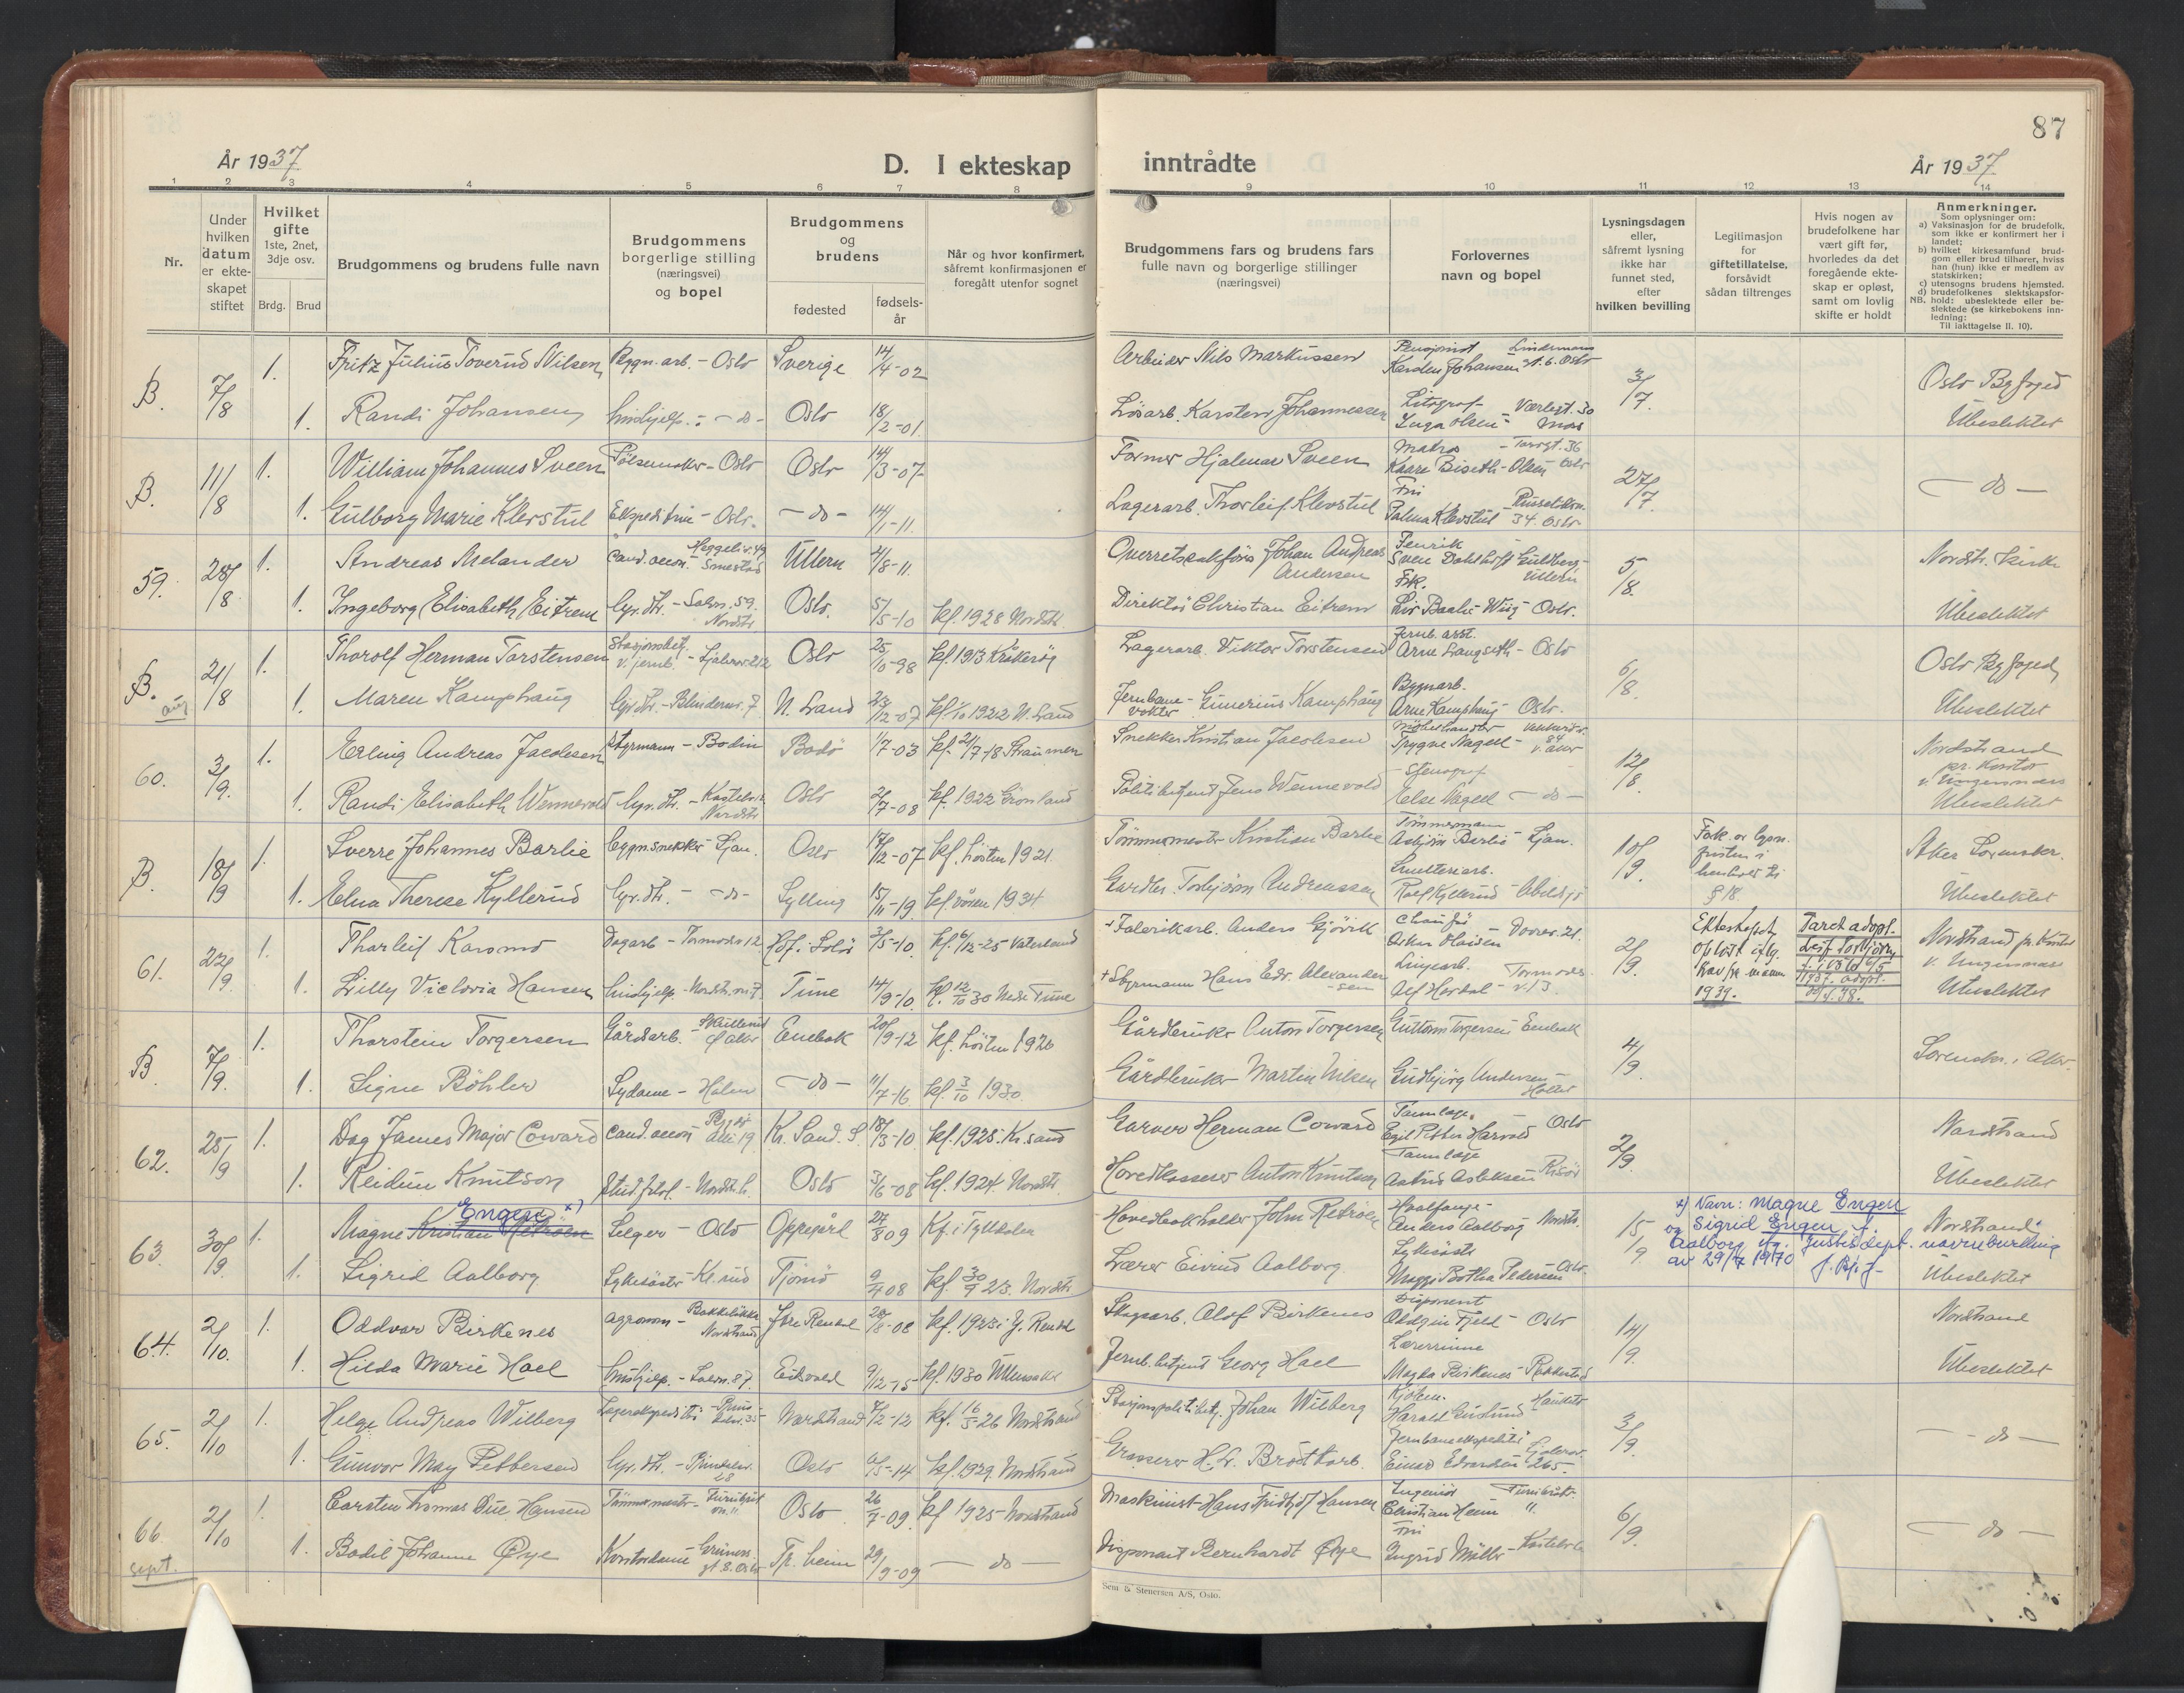 87
År 1937
D. I ekteskap inntrådte
År 1937
1 2 3 4 5 6 7 8 9 10 11 12 13 14
Nr.
Under hvilken datum er ekteskapet stiftet
Hvilket gifte 1ste, 2net, 3dje osv.
Brdg. Brud
Brudgommens og brudens fulle navn
Brudgommens borgerlige stilling (næringsvei) og bopel
Brudgommens og brudens
fødested
fødsels-år
Når og hvor konfirmert, såfremt konfirmasjonen er foregått utenfor sognet
Brudgommens fars og brudens fars fulle navn og borgerlige stillinger (næringsvei)
Forlovernes navn og bopel
Lysningsdagen eller, såfremt lysning ikke har funnet sted, efter hvilken bevilling
Legitimasjon for giftetillatelse, forsåvidt sådan tiltrenges
Hvis nogen av brudefolkene har vært gift før, hvorledes da det foregående ekteskap er opløst, samt om lovlig skifte er holdt
Anmerkninger.
Som oplysninger om:
a) Vaksinasjon for de brudefolk, som ikke er konfirmert her i landet;
b) hvilket kirkesamfund brudgom eller brud tilhører, hviss han (hun) ikke er medlem av statskirken;
c) utensogns brudens hjemsted.
d) brudefolkenes slektskapsforhold: ubeslektede eller beslektede (se kirkebokens innledning:
NB. Til iakttagelse II. 10).
B. 7/8 1. Fritz Julius Toverud Nilsen Bygn.arb. - Oslo Sverige 14/4-02 Arbeider Nils Markussen Karsten Johansen Oslo 3/7. Oslo Byfoged
1. Randi Johansen Hushjelp. - do - Oslo 18/2-01 Løsarb. Karsten Johannessen Litograf Inga Olsen - Moss Ubeslektet
B. 11/8 1. William Johannes Sveen Pølsemaker - Oslo Oslo 14/3-07 Former Hjalmar Sveen Matros Kaare Biseth-Olsen Oslo 27/7. - do -
1. Gulborg Marie Klevstul Ekspeditrise - Oslo. - do - 14/1-11. Lagerarb. Thorleif Klevstul Fru Palma Klevstul 34. Oslo
59. 28/8 1. Andreas Melander Cand. oecon. Heggeliv. 49 Smestad Ullern 4/8-11. Overretssakfører Johan Andreas Andersen Fenrik Sven Guldberg - Ullern 5/8. Nordstr. kirke
1. Ingeborg Elisabeth Eitrem Hj. dtr. - Solvn. 59. Nordstr. Oslo. 5/5-10 kf. 1928 Nordstr. Direktør Christian Eitrem Frk. Liv Wiig - Oslo. Ubeslektet
B. aug 21/8 1. Thorolf Herman Torstensen Stasjonsbetj. v. jernb. - Oslo 25/10-98 kf. 1913 Kråkerøy Lagerarb. Viktor Torstensen Jernb. asst. Arne Langseth - Oslo 6/8. Oslo Byfoged
1. Maren Kamphaug Hj. dtr. - Blindernv. 7 N. Land 23/12-07 kf. 1/10 1922 N. Land Jernbanevokter Gunerius Kamphaug Bygn.arb. Arne Kamphaug - Oslo. Ubeslektet
60. 3/9. 1. Erling Andreas Jacobsen Styrmann - Bodin Bodø 1/7-03 kf. 21/7-18 Straumen Snekker Kristian Jacobsen Trygve Nagell 12/8. Nordstrand pr. kontor v. Ungensmar
1. Randi Elisabeth Wennevold Hj. dtr. - Kastelv. Nordstr. Oslo 2/7-08 kf. 1922 Grønland Politibetjent Jens Wennevold Stenograf Else Nagell - do - Ubeslektet
B. 18/9 1. Sverre Johannes Berlie Bygn.snekker - Ljan. Oslo 17/2-07 kf. høsten 1921. Tømmermester Kristian Berlie Tømmermann Asbjørn Berlie - Ljan. 10/9. Aker Sorenskr.
1. Elna Therese Kyllerud Hj. dtr. - do - Lylling 15/11-19 kf. våren 1934 Gårdbr. Torbjørn Andreassen Rolf Kyllerud henhold til § 18. Ubeslektet
61. 22/9. 1. Thorleif Karsmo Dagarb. - Tormodsv. 12 Hof i Solør 3/5-10. kf. 6/12-25 Vaterland + Fabrikkarb. Anders Gjørik Chauffør Oskar Dovrev. 21. 2/9. Ekteskapet opløst iflg. 1939. Paret adopt. Leif Torbjørn 1937. adopt. Nordstrand pr. kontor
1. Lilly Viclovia Hansen Hushjelp - Nordstr.vn. 7. Tune 14/9-10 kf. 12/10 30 Nedre Tune + Styrmann Hans Edv. Alexandersen Leif Hordal - Tormods v. 13. v. Ungensmar Ubeslektet
B. 7/9. 1. Thorstein Torgersen Gårdarb. - Skullerud Ø. Aker Enebak 20/9-12 kf. høsten 1926 Gårdbruker Anton Torgersen Guttorm Torgersen Enebak 4/9. Sorenskr. i Aker.
1. Signe Bøhler Sydame - Holm - do - 11/7-16. kf. 3/10 1930. Gårdbruker Martin Nilsen Gudbjørg Andersen
62. 25/9 1. Dag James Major Coward Cand. oecon 19 Kr. Sand. S. 18/3-10 kf. 1925. Kr.sand Garver Herman Coward Tannlæge Egil Petter Harwold Oslo 2/9. Nordstrand
1. Reidun Knutson Nordstr. h. Oslo 3/6-08 kf. 1924. Nordstr. Hovedkasserer Anton Knutson Tannlæge Astrid Aslaksen Risør Ubeslektet
63. 30/9. 1. Magne Kristian Retrøen Engen x) Selger - Oslo Oppegård 27/8 09 Kf. i Tylldalen Hovedbokholder John Retrøen Anders Aalborg Nordstr. 15/9. x) Navn: Magne Engen og Sigrid Engen f. Aalborg iflg. Justisdept. navnebevilling av 29/7 1970 Nordstrand
1. Sigrid Aalborg Sykesøster - Kr.sund Tjømø 9/4 08 kf. 30/9 23. Nordstr. Lærer Eivind Aalborg Sykesøster Botha Pedersen Oslo Ubeslektet
64. 2/10. 1. Oddvar Birkenes Agronom - Bakkeløkka Nordstrand Ytre Rendal 28/8-08 kf. 1923 i Y. Rendal Skogsarb. Olof Birkenes Disponent Fjeld - Oslo 14/9. Nordstrand
1. Hilda Marie Hoel Hushjelp. - Solvn. 87. Eidsvold 9/12-15 kf. 1930 Ullensaker Jernb.betjent Georg Hoel Lærerinne Magda Birkenes - Rakkestad Ubeslektet
65. 2/10 1. Helge Andreas Wilberg Lagerekspeditør Nordstrand 7/2-12 kf. 16/5 26 Nordstrand Stasjonspolitibetj. Johan Wilberg Harald 3/9. - do -
1. Gunvor May Pettersen Hj. dtr. - 28 Oslo 6/5-14 kf. 1929. Nordstrand Grosserer H. Lr. Brødtkorb. Jernbaneekspeditør Einar Edvardsen 265.
66. sept. 2/10 1. Carsten Thomas Due Hansen Tømmermester Oslo 26/7-09 kf 1925 Nordstrand Maskinist Hans Fridtjof Hansen Ingeniør Christian Heim 6/9. - do -
1. Bodil Johanne Øye Kontordame gt. 8. Oslo Tr. heim 29/9-09 - do - Disponent Bernhardt Øye Fru Ingrid Møller
Sem & Stenersen A/S, Oslo.